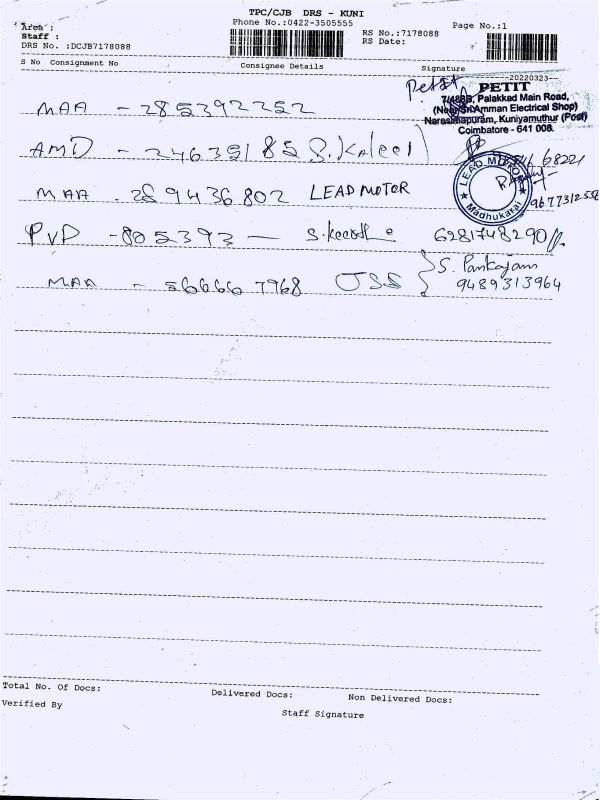 TPC/CJB DRS - KUNI
Phone No.:0422-3505555
Page No.:1
Area :
Staff :
RS No.:7178088
RS Date:
DRS No. :DCJB7178088
S No Consignment No Consignee Details Signature
20220323
Petit
PETIT
7/488B, Palakkad Main Road,
(Near Sri Amman Electrical Shop)
Narasimapuram, Kuniyamuthur (Post)
Coimbatore - 641 008.
MAA - 285392252
AMD - 246351852 S. Kaleel
68221
LEAD MOTOR
Madhukarai
9677312558
MAA . 289436802 LEAD MOTOR
PVD - 805393 — S. Keerth 6281748290
MAA - 566667968 JSS S. Pankajam
9489313964
Total No. Of Docs: Delivered Docs: Non Delivered Docs:
Verified By
Staff Signature